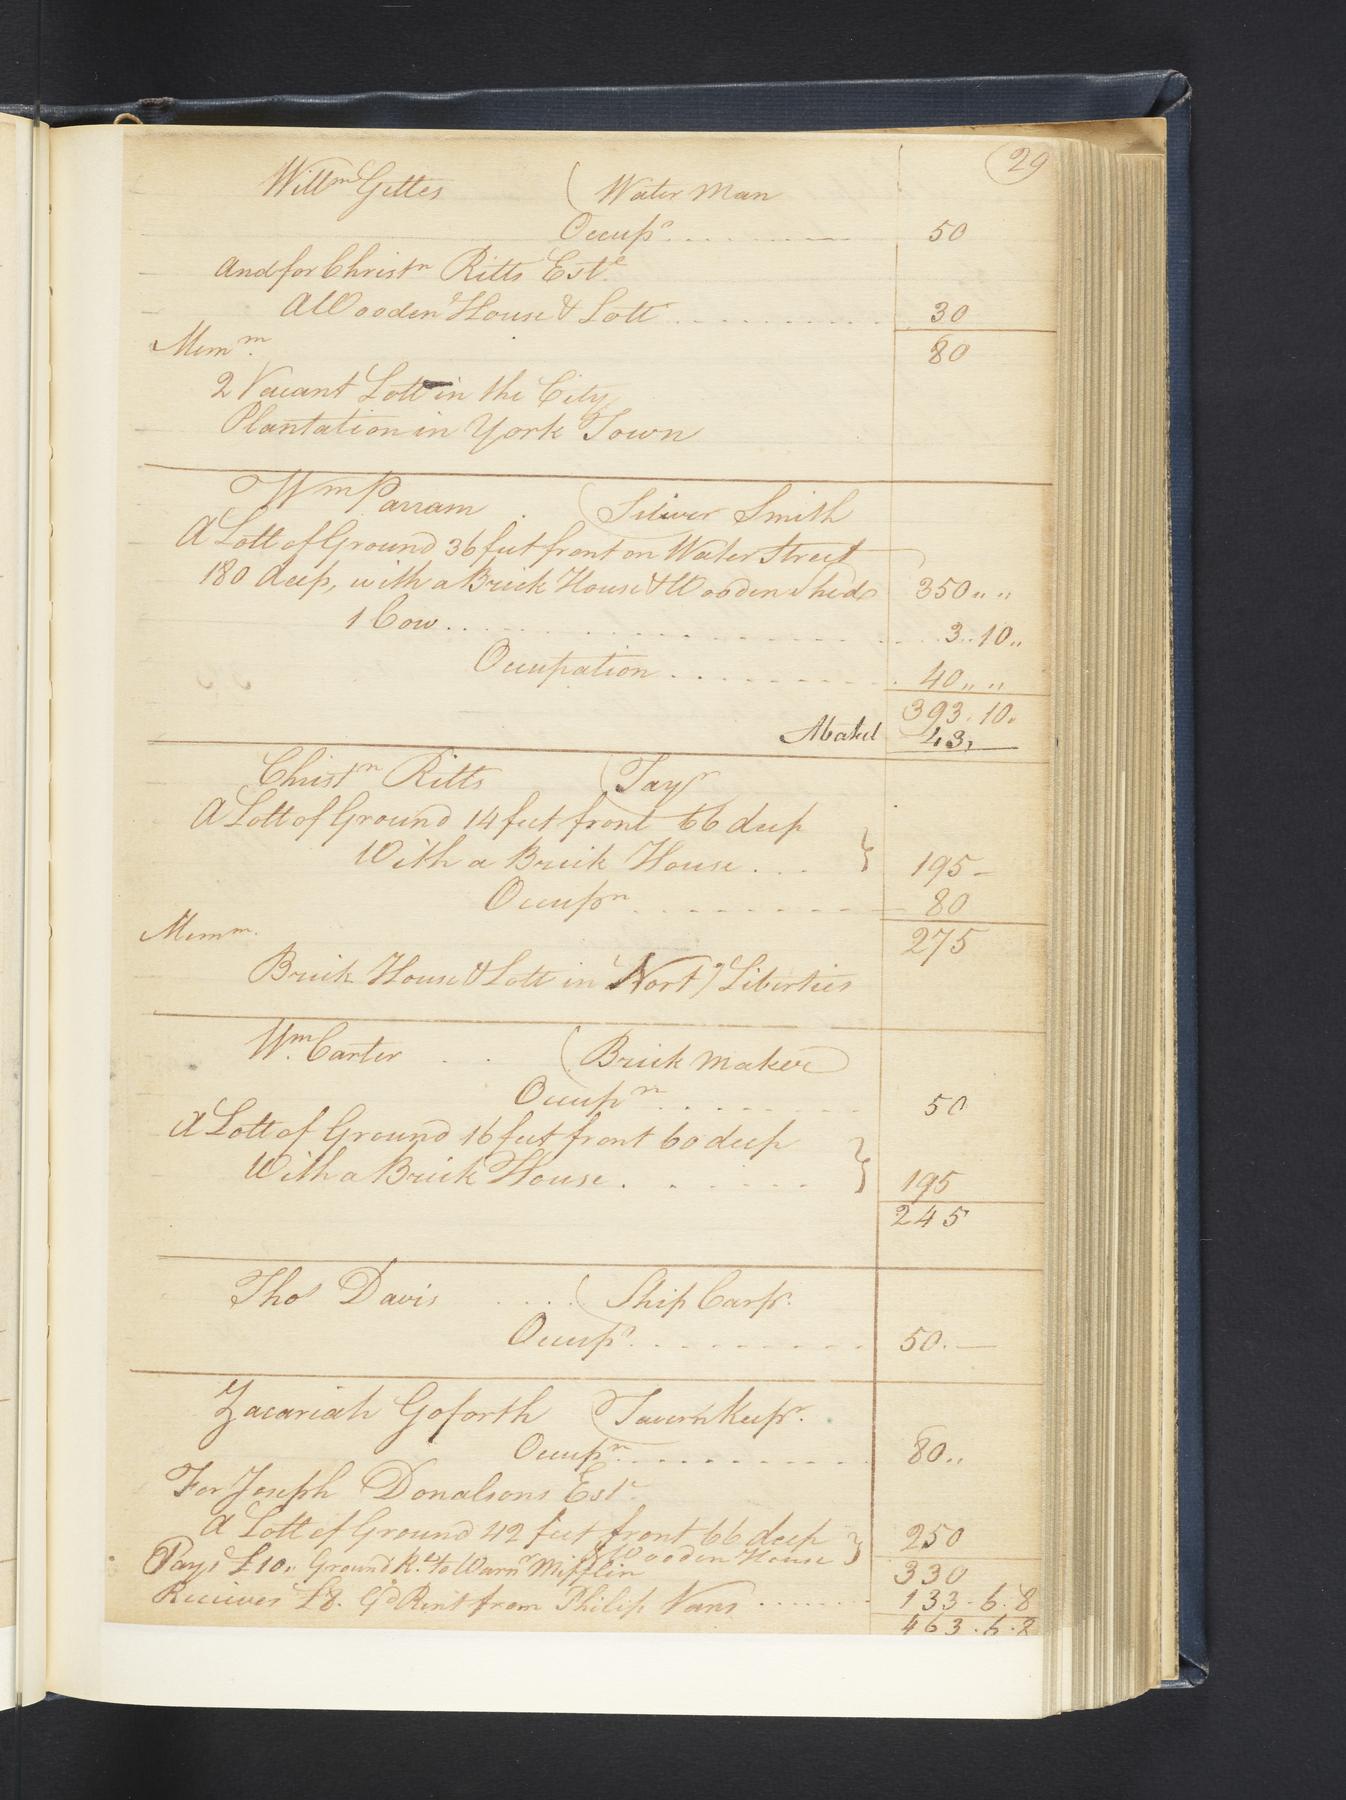 29
Willm Gettes (Water Man
Occupn 50
And for Christn Ritts Este
A Wooden House & Lott 30
Memm. 80
2 Vacant Lott in the City
Plantation in York Town
Wm Parram . (Silver Smith
A Lott of Ground 36 feet front on Water Street
180 deep, with a Brick House & Wooden Sheds 350 " "
1 Cow 3 " 10 "
Occupation 40 " "
393 . 10 .
Abated 43,
Christn Ritts (Tayr
A Lott of Ground 14 feet front 66 deep
With a Brick House } 195 -
Occupn 80
Memm. 275
Brick House & Lott in Nort) Liberties
Wm. Carter . . (Brick maker)
Occupn 50
A Lott of Ground 16 feet front 60 deep
With a Brick House } 195
245
Thos Davis (Ship Carpr.
Occupn 50. —
Zacariah Goforth (Tavern Keepr.
Occupn 80 "
For Joseph Donalsons Este
A Lott of Ground 42 feet front 66 deep } 250
& Wooden House
Pays £10 " Ground Rt. to Warnr Mifflin 330
Recieves £8. Gd Rent from Philip Vans 133 . 6 . 8
463 . 6 . 8